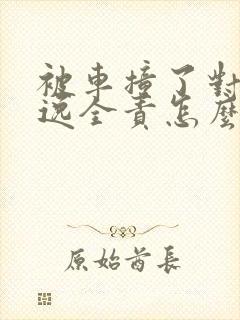 被車撞了對
逃全責怎麼
原始酋長